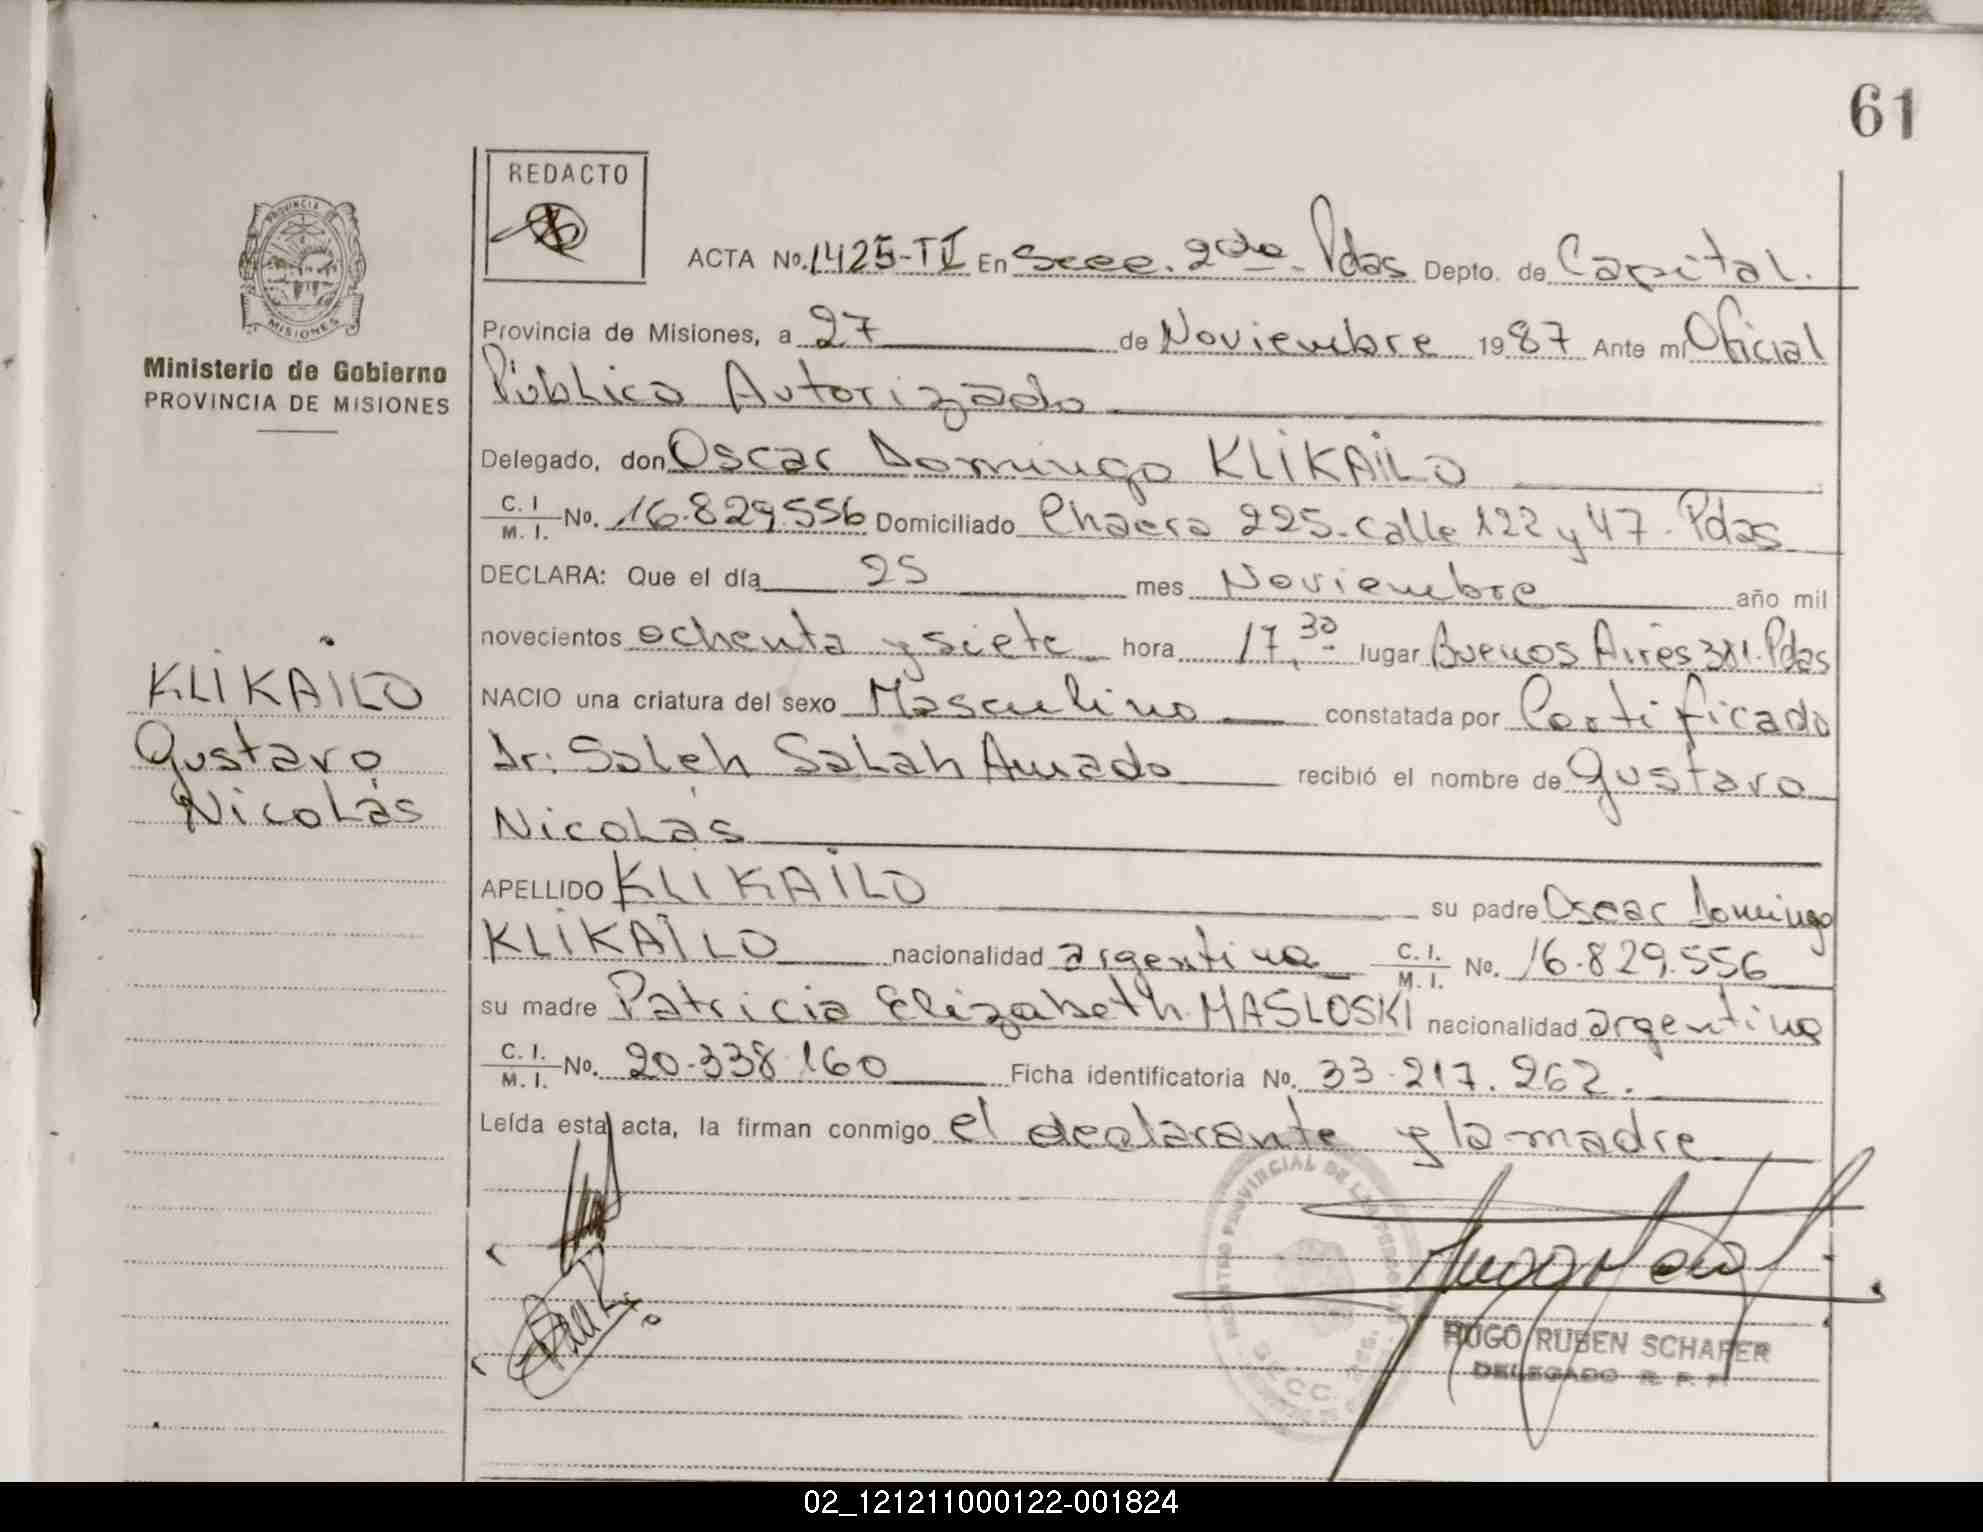 61
REDACTO
PROVINCIA DE
MISIONES
Ministerio de Gobierno
PROVINCIA DE MISIONES
ACTA No. 1425-TI En Secc. 2da. Pdas Depto. de Capital.
Provincia de Misiones, a 27 de Noviembre 1987 Ante mi Oficial
Público Autorizado
Delegado, don Oscar Domingo KLIKAILO
C. I. / M. I. No. 16.829.556 Domiciliado Chacra 225-calle 122 y 47-Pdas
DECLARA: Que el día 25 mes Noviembre año mil
novecientos ochenta y siete hora 17,30 lugar Buenos Aires 381.Pdas
KLIKAILO
Gustavo
Nicolás
NACIO una criatura del sexo Masculino constatada por Certificado
Dr: Saleh Salah Amado recibió el nombre de Gustavo
Nicolás
APELLIDO KLIKAILO su padre Oscar Domingo
KLIKAILO nacionalidad argentina C. I. / M. I. No. 16.829.556
su madre Patricia Elizabeth MASLOSKI nacionalidad argentina
C. I. / M. I. No. 20.338.160 Ficha identificatoria No. 33.217.262.
Leída esta acta, la firman conmigo el declarante y la madre
HUGO RUBEN SCHAFER
DELEGADO R. P. P.
02_121211000122-001824